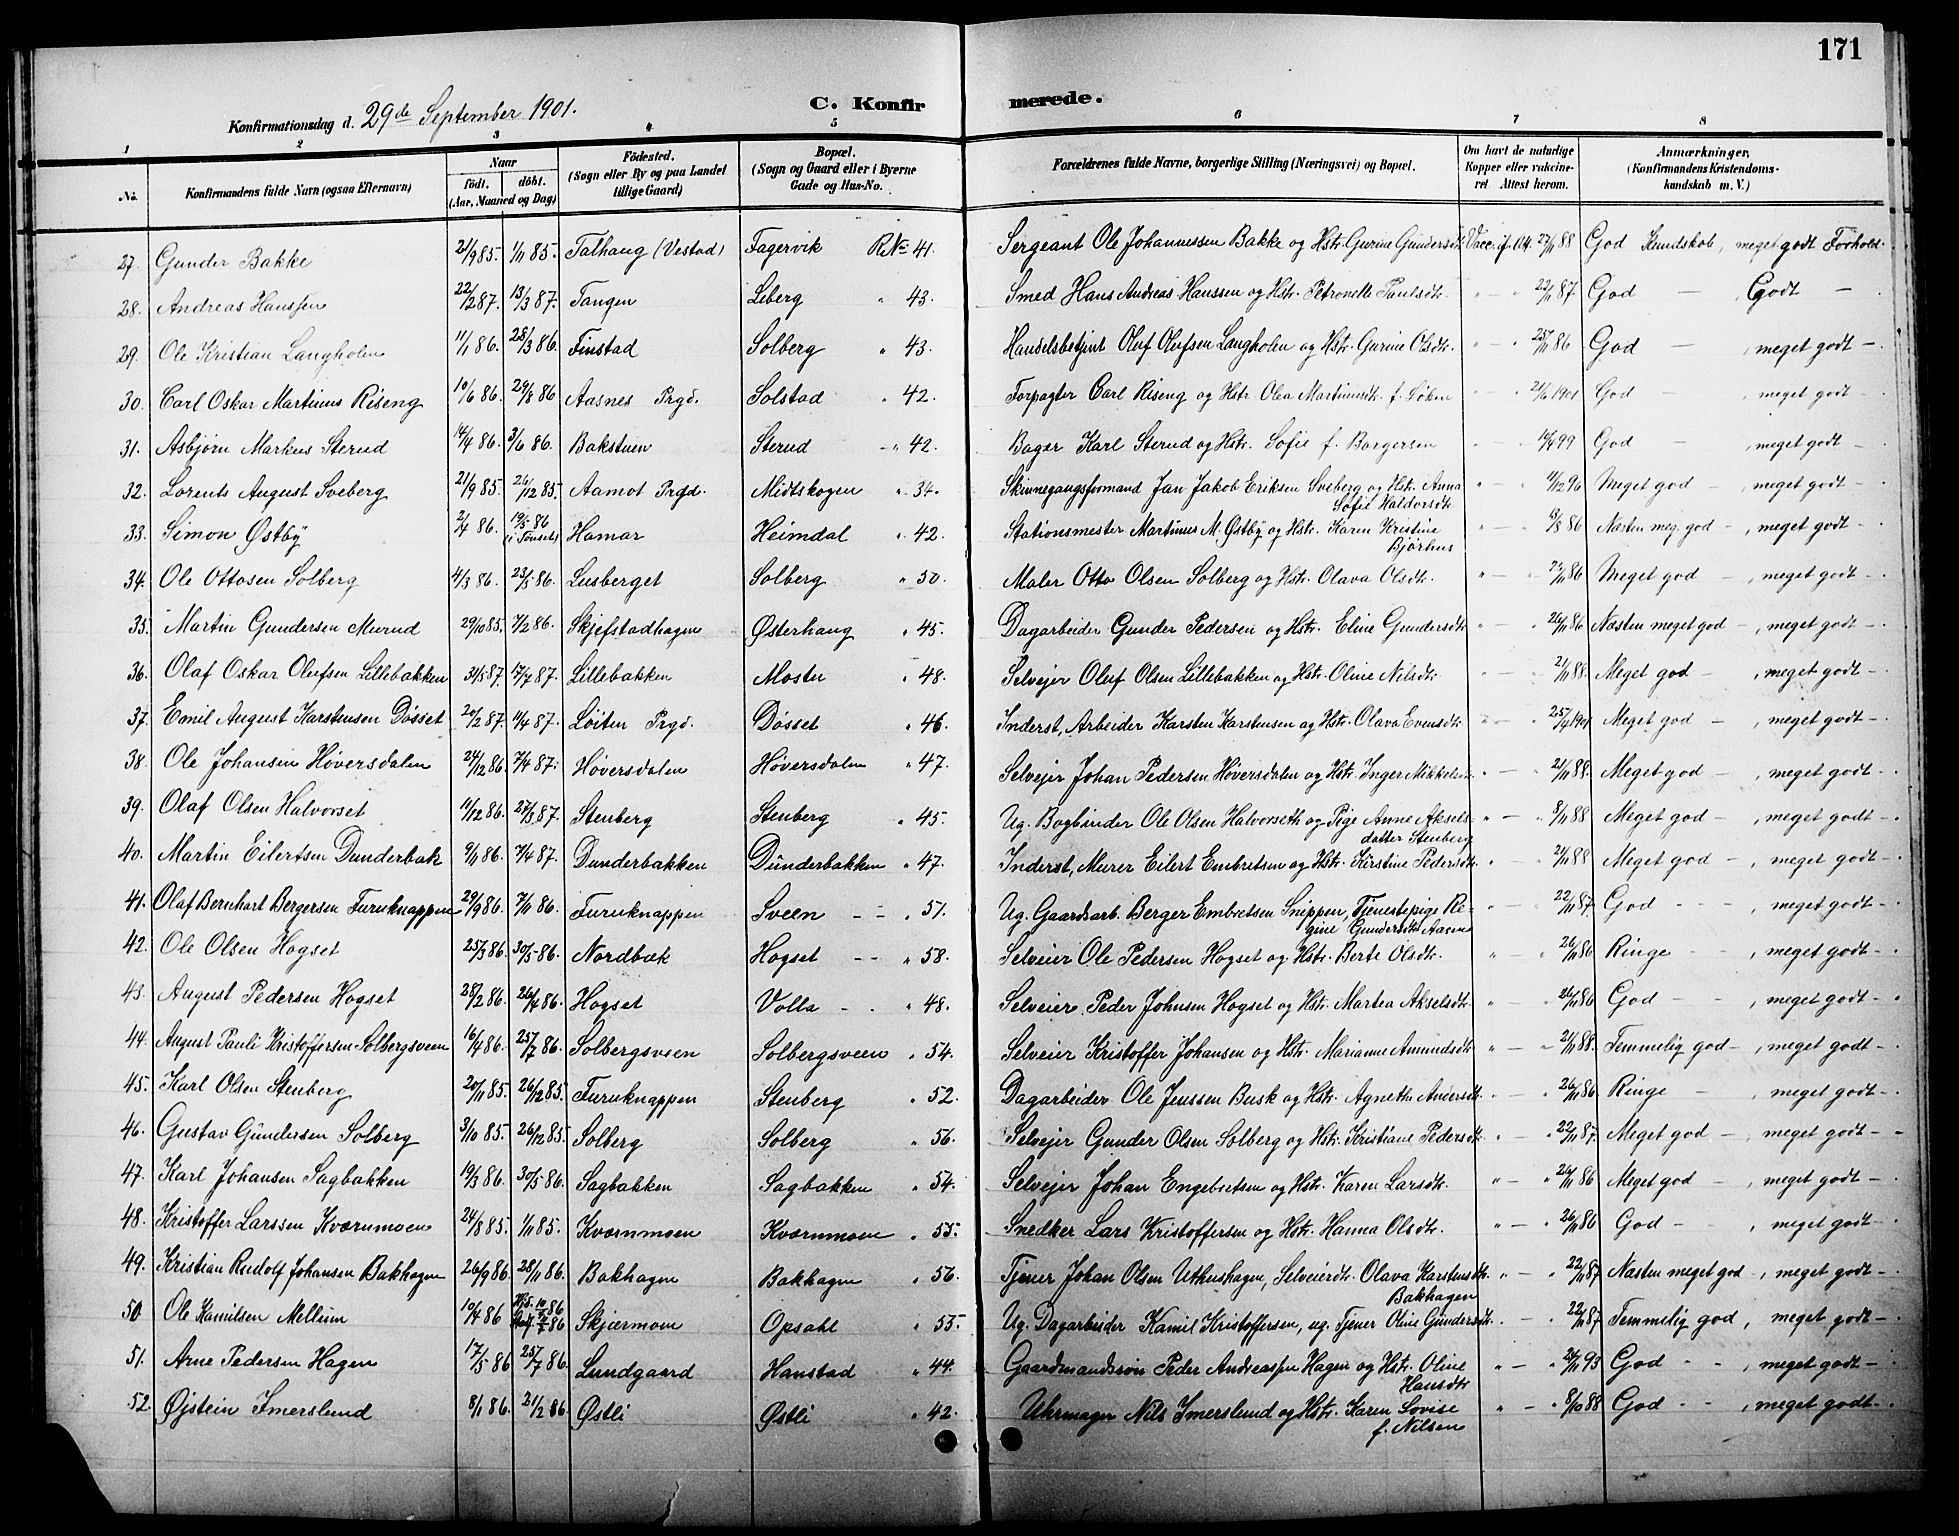 171
C. Konfirmerede.
Konfirmationsdag d. 29de September 1901.
1 2 3 4 5 6 7 8
No. Konfirmandens fulde Navn (ogsaa Efternavn) Naar født. døbt. (Aar, Maaned og Dag) Fødested. (Sogn eller By og paa Landet tillige Gaard) Bopæl. (Sogn og Gaard eller i Byerne Gade og Hus-No. Forældrenes fulde Navne, borgerlige Stilling (Næringsvei) og Bopæl. Om havt de naturlige Kopper eller vakcineret. Attest herom. Anmærkninger, (Konfirmandens Kristendomskundskab m. V.)
27. Gunder Bakke 21/9 85. 1/11 85. Talhaug (Vestad) Fagervik R No 41. Sergeant Ole Johannessen Bakke og Hstr. Gurine Gundersdt. Vacc. if. Att. 27/11 88 God Kundskab, meget godt Forhold.
28. Andreas Hanssen 22/2 87. 13/3 87. Tangen Leberg " 43. Smed Hans Andreas Hanssen og Hstr. Petronelle Paulsdtr. " — " 22/11 87 God — Godt —
29. Ole Kristian Langholen 11/1 86. 28/3 86. Finstad Solberg " 43. Handelsbetjent Oluf Olufsen Langholen og Hstr. Gurine Olsdtr. " — " 25/11 86 God — , meget godt —
30. Carl Oskar Martinus Riseng 10/6 86. 29/8 86 Aasnes Prgd. Solstad " 42. Forpagter Carl Riseng og Hstr. Olea Martinusdt. f. Løken " — " 21/6 1901 God — , meget godt —
31. Asbjørn Markus Sterud 14/4 86. 3/6 86. Bakstuen Sterud " 42. Bager Karl Sterud og Hstr. Sofie f. Borgersen " — " 14/4 99 God — , meget godt —
32. Lorents August Sveberg 21/9 85. 26/12 85. Aamot Prgd. Midtskogen " 34. Skinnegangsformand Jan Jakob Eriksen Sveberg og Hstr. Anna Sofie Haldorsdt. " — " 11/12 96 Meget god — , meget godt —
33. Simon Østby 2/4 86. 19/5 86 (i Tønset) Hamar Heimdal " 42. Stationsmester Martinus M. Østby og Hstr. Karen Kristine Bjørhus " — " 13/8 86 Næsten meg. god — , meget godt —
34. Ole Ottosen Solberg 4/3 86. 23/5 86. Lusberget Solberg " 50. Maler Otto Olsen Solberg og Hstr. Olava Olsdt. " — " 26/11 86 Meget god — , meget godt —
35. Martin Gundersen Murud 29/10 85. 7/2 86. Skjefstadhagen Østerhaug " 45. Dagarbeider Gunder Pedersen og Hstr. Eline Gundersdt. " — " 26/11 86 Næsten meget god — , meget godt —
36. Olaf Oskar Olufsen Lillebakken 31/5 87. 17/7 87. Lillebakken Moster " 48. Selveier Oluf Olsen Lillebakken og Hstr. Oline Nilsdtr. " — " 21/11 88. Meget god — , meget godt —
37. Emil August Karstensen Døsset 20/2 87. 11/4 87. Løiten Prgd. Døsset " 46. Inderst, Arbeider Karsten Karstensen og Hstr. Olava Evensdt. " — " 25/4 1901 Meget god — , meget godt —
38. Ole Johansen Høversdalen 24/12 86. 7/4 87. Høversdalen Høversdalen " 47. Selvejer Johan Pedersen Høversdalen og Hstr. Inger Mikkelsdt. " — " 21/11 88. Meget god — , meget godt —
39. Olaf Olsen Halvorset 11/12 86. 27/3 87. Stenberg Stenberg " 45. Ug. Bogbinder Ole Olsen Halvorseth og Pige Anne Akselsdatter Stenberg " — " 8/11 88 Meget god — , meget godt —
40. Martin Eilertsen Dunderbak 9/11 86. 7/4 87. Dunderbakken Dunderbakken " 47. Inderst, Murer Eilert Embretsen og Hstr. Kirstine Pedersdt. " — " 21/11 88 Meget god — , meget godt —
41. Olaf Bernhart Bergersen Furuknappen 29/9 86. 7/11 86. Furuknappen Sveen — " 51. Ug. Gaardsarb. Berger Embretsen Snippen, Tjenestepige Regine Gundersdt. Aasen " — " 22/11 87 God — , meget godt —
42. Ole Olsen Hogset 25/3 86. 30/5 86. Nordbæk Hogset — " 58. Selveier Ole Pedersen Hogset og Hstr. Berte Olsdtr. " — " 26/11 86 Ringe — , meget godt —
43. August Pedersen Hogset 28/2 86. 26/4 86. Hogset Volla — " 48. Selveier Peder Johnsen Hogset og Hstr. Martea Akselsdt. " — " 26/11 86 God — , meget godt —
44. August Pauli Kristoffersen Solbergsveen 16/4 86. 25/7 86. Solbergsveen Solbergsveen " 54. Selveier Kristoffer Johansen og Hstr. Marianne Amundsdt. " — " 21/11 88. Temmelig god — , meget godt —
45. Karl Olsen Stenberg 20/11 85. 26/12 85. Furuknappen Stenberg " 52. Dagarbeider Ole Jenssen Busk og Hstr. Agnethe Andersdt. " — " 26/11 86 Ringe — , meget godt —
46. Gustav Gundersen Solberg 3/10 85. 26/12 85. Solberg Solberg " 56. Selvejer Gunder Olsen Solberg og Hstr. Kristiane Pedersdt. " — " 22/11 87. Meget god — , meget godt —
47. Karl Johansen Sagbakken 19/3 86. 30/5 86. Sagbakken Sagbakken " 54. Selvejer Johan Engebretsen og Hstr. Karen Larsdtr. " — " 26/11 86 Meget god — , meget godt —
48. Kristoffer Larssen Kværnmoen 24/8 85. 1/11 85. Kværnmoen Kværnmoen " 55. Snedker Lars Kristoffersen og Hstr. Hanna Olsdtr. " — " 26/11 86 God — , meget godt —
49. Kristian Rudolf Johansen Bakhagen 26/9 86. 28/11 86. Bakhagen Bakhagen " 56. Tjener Johan Olsen Uthushagen, Selveierdt. Olava Karstensdt. Bakhagen " — " 22/11 87 Næsten meget god — , meget godt —
50. Ole Kamilsen Mellum 10/4 86 86 86 Skjærmoen Opsahl " 55. Ug. Dagarbeider Kamil Kristoffersen, ug. Tjener Oline Gundersdt. " — " 22/11 87 Temmelig god, meget godt —
51. Arne Pedersen Hagen 17/5 86 25/7 86. Lundgaard Hanstad " 44. Gaardmandssøn Peder Andreassen Hagen og Hstr. Oline Hansdtr. " — " 21/11 93 God — , meget godt —
52. Øjstein Imerslund 8/1 86. 21/2 86. Østli Østli " 42. Uhrmager Nils Imerslund og Hstr. Karen Lovise f. Nilsen " — " 8/10 88 God — , meget godt —